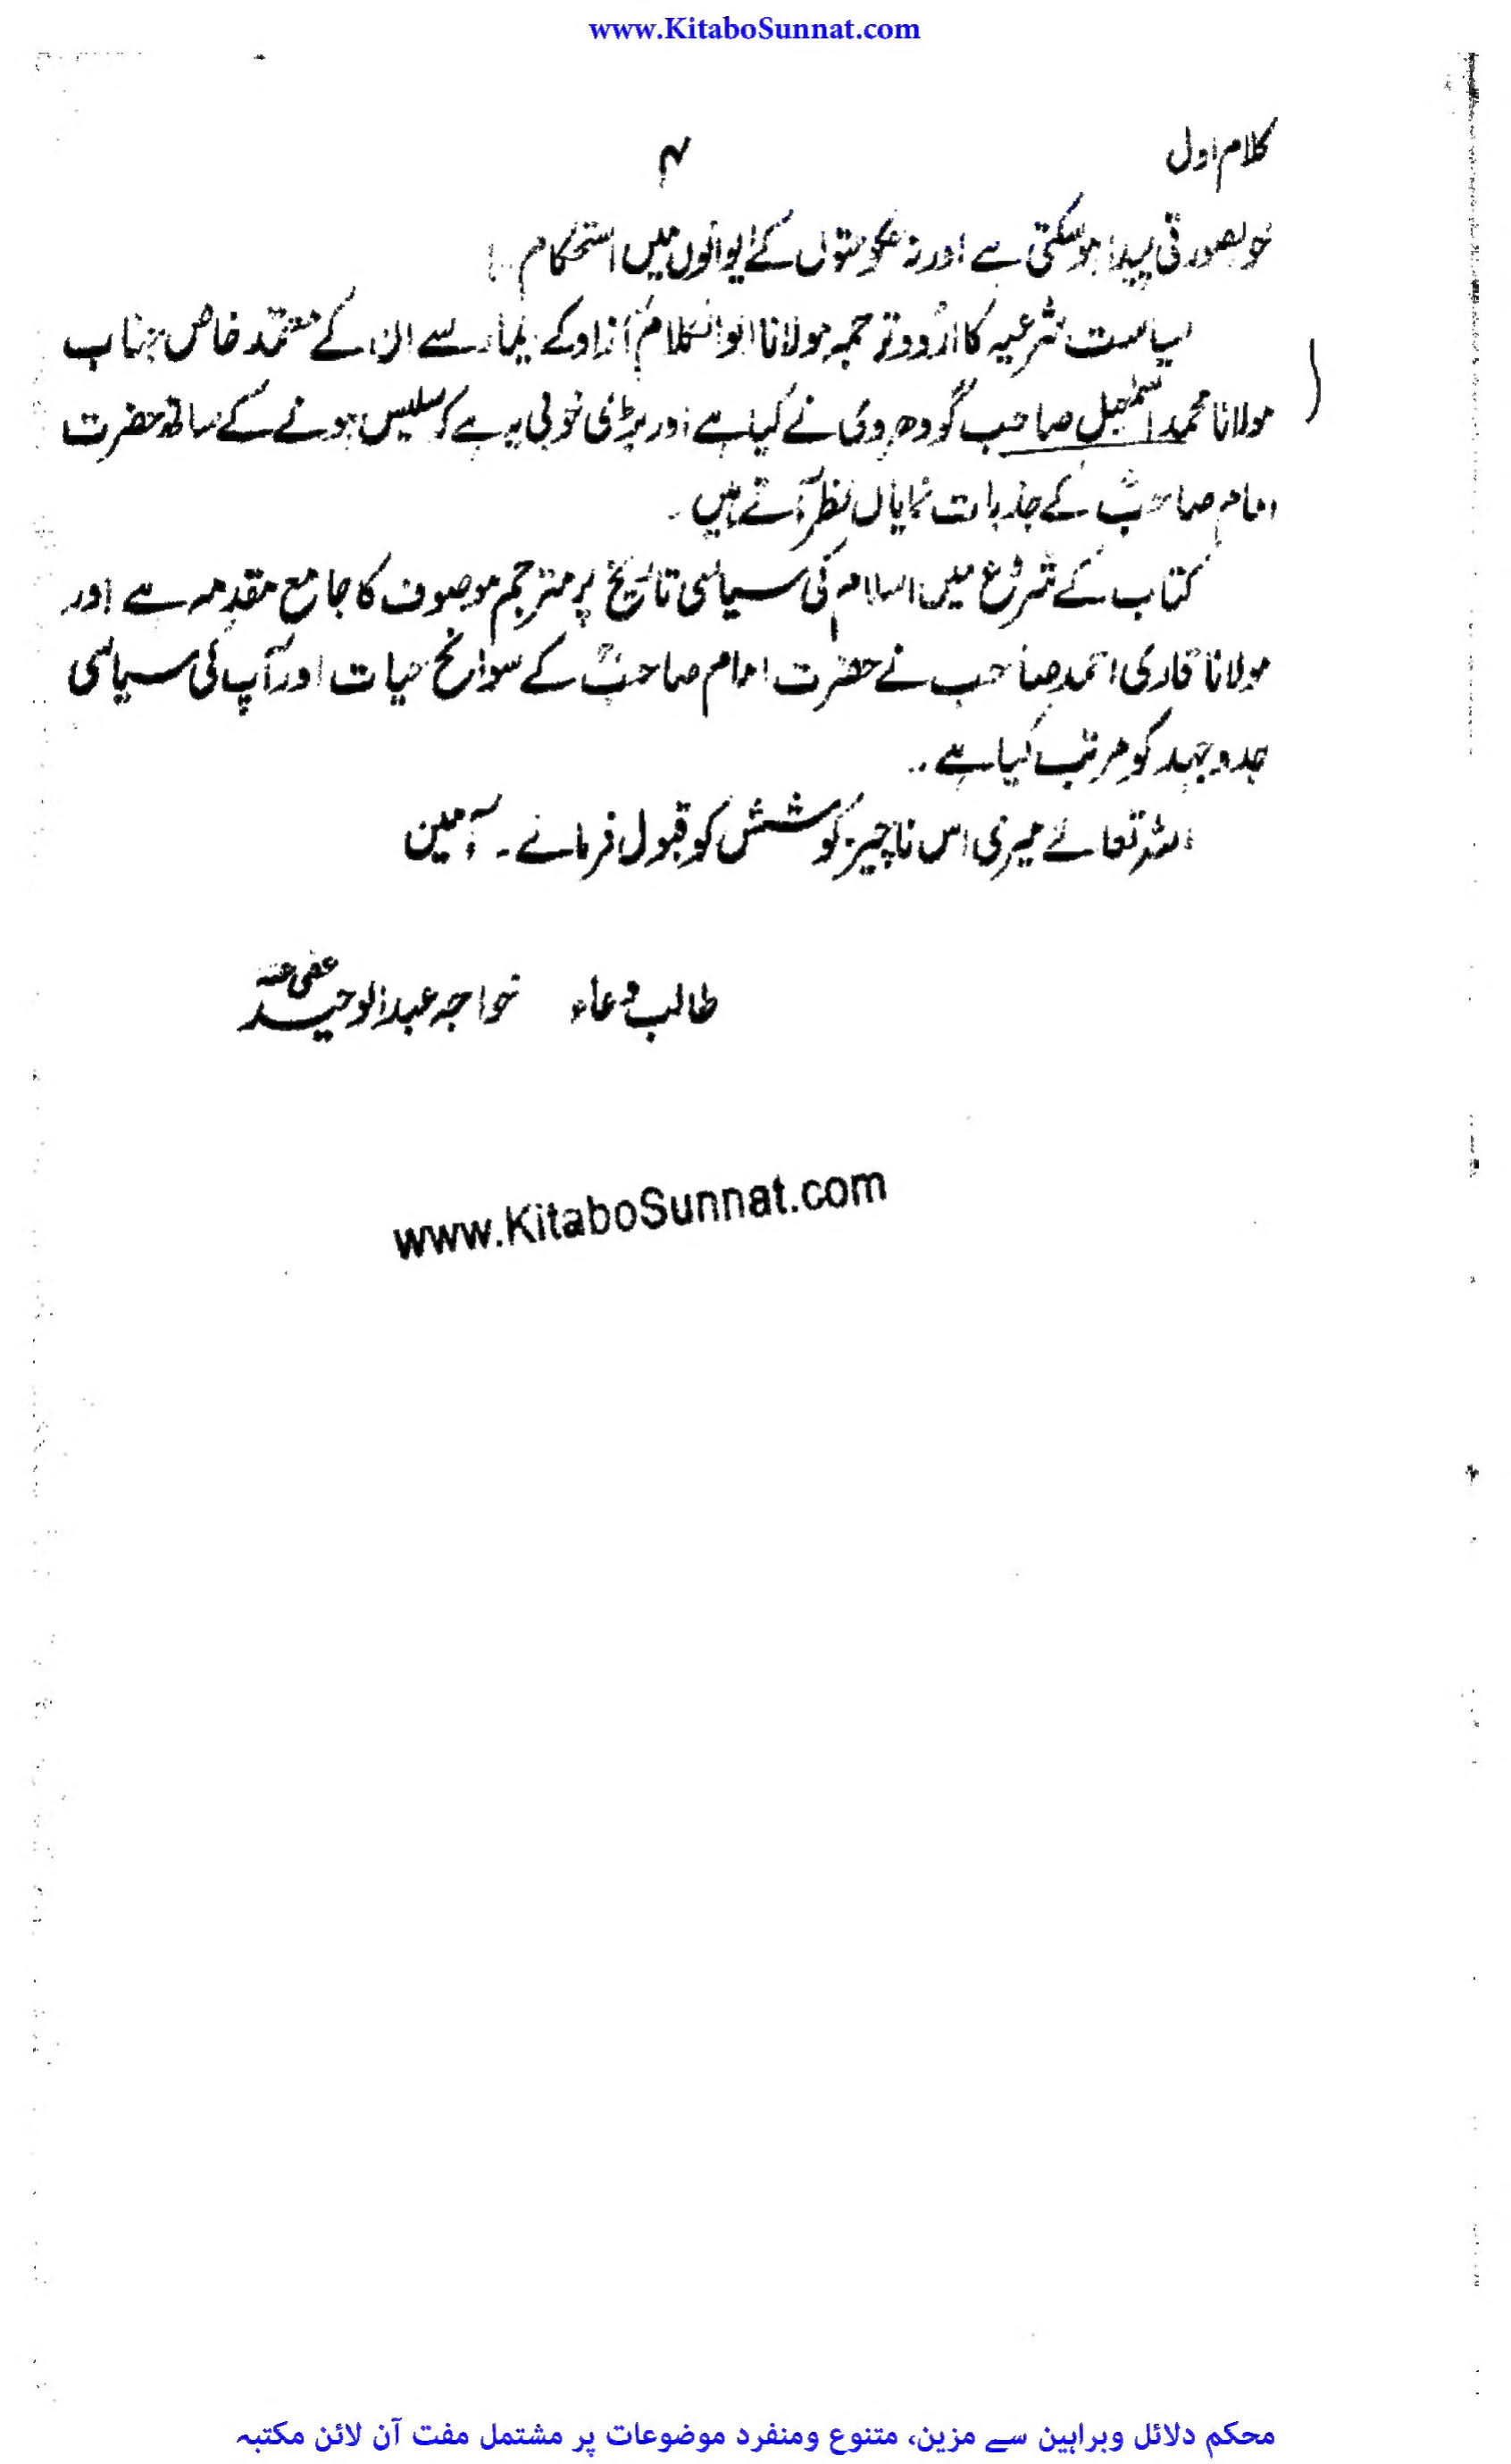 www.KitaboSunnat.com
کلام اول
۴
خوبصورتی پیدا ہوسکتی ہے اور نہ حکومتوں کے ایوانوں میں استحکام ..!
سیاست شرعیہ کا اردو ترجمہ مولانا ابوالکلام آزاد کے ایماء سے ان کے معتمد خاص جناب
مولانا محمد اسمٰعیل صاحب گودھروی نے کیا ہے اور بڑی خوبی یہ ہے کہ سلیس ہونے کے ساتھ حضرت
امام صاحبؒ کے جذبات نمایاں نظر آتے ہیں ۔
کتاب کے شروع میں اسلام کی سیاسی تاریخ پر مترجم موصوف کا جامع مقدمہ ہے اور
مولانا قاری احمد صاحب نے حضرت امام صاحبؒ کے سوانح حیات اور آپ کی سیاسی
جدوجہد کو مرتب کیا ہے ۔۔
اللہ تعالےٰ میری اس ناچیز کوشش کو قبول فرمائے ۔ آمین
طالب دعاء خواجہ عبدالوحید عفی عنہ
www.KitaboSunnat.com
محکم دلائل وبراہین سے مزین، متنوع ومنفرد موضوعات پر مشتمل مفت آن لائن مکتبہ